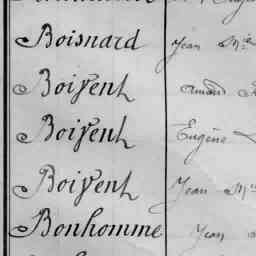 Boisnard Jean Mie
Boivent Amand
Boivent Eugène
Boivent Jean Mie
Bonhomme Jean